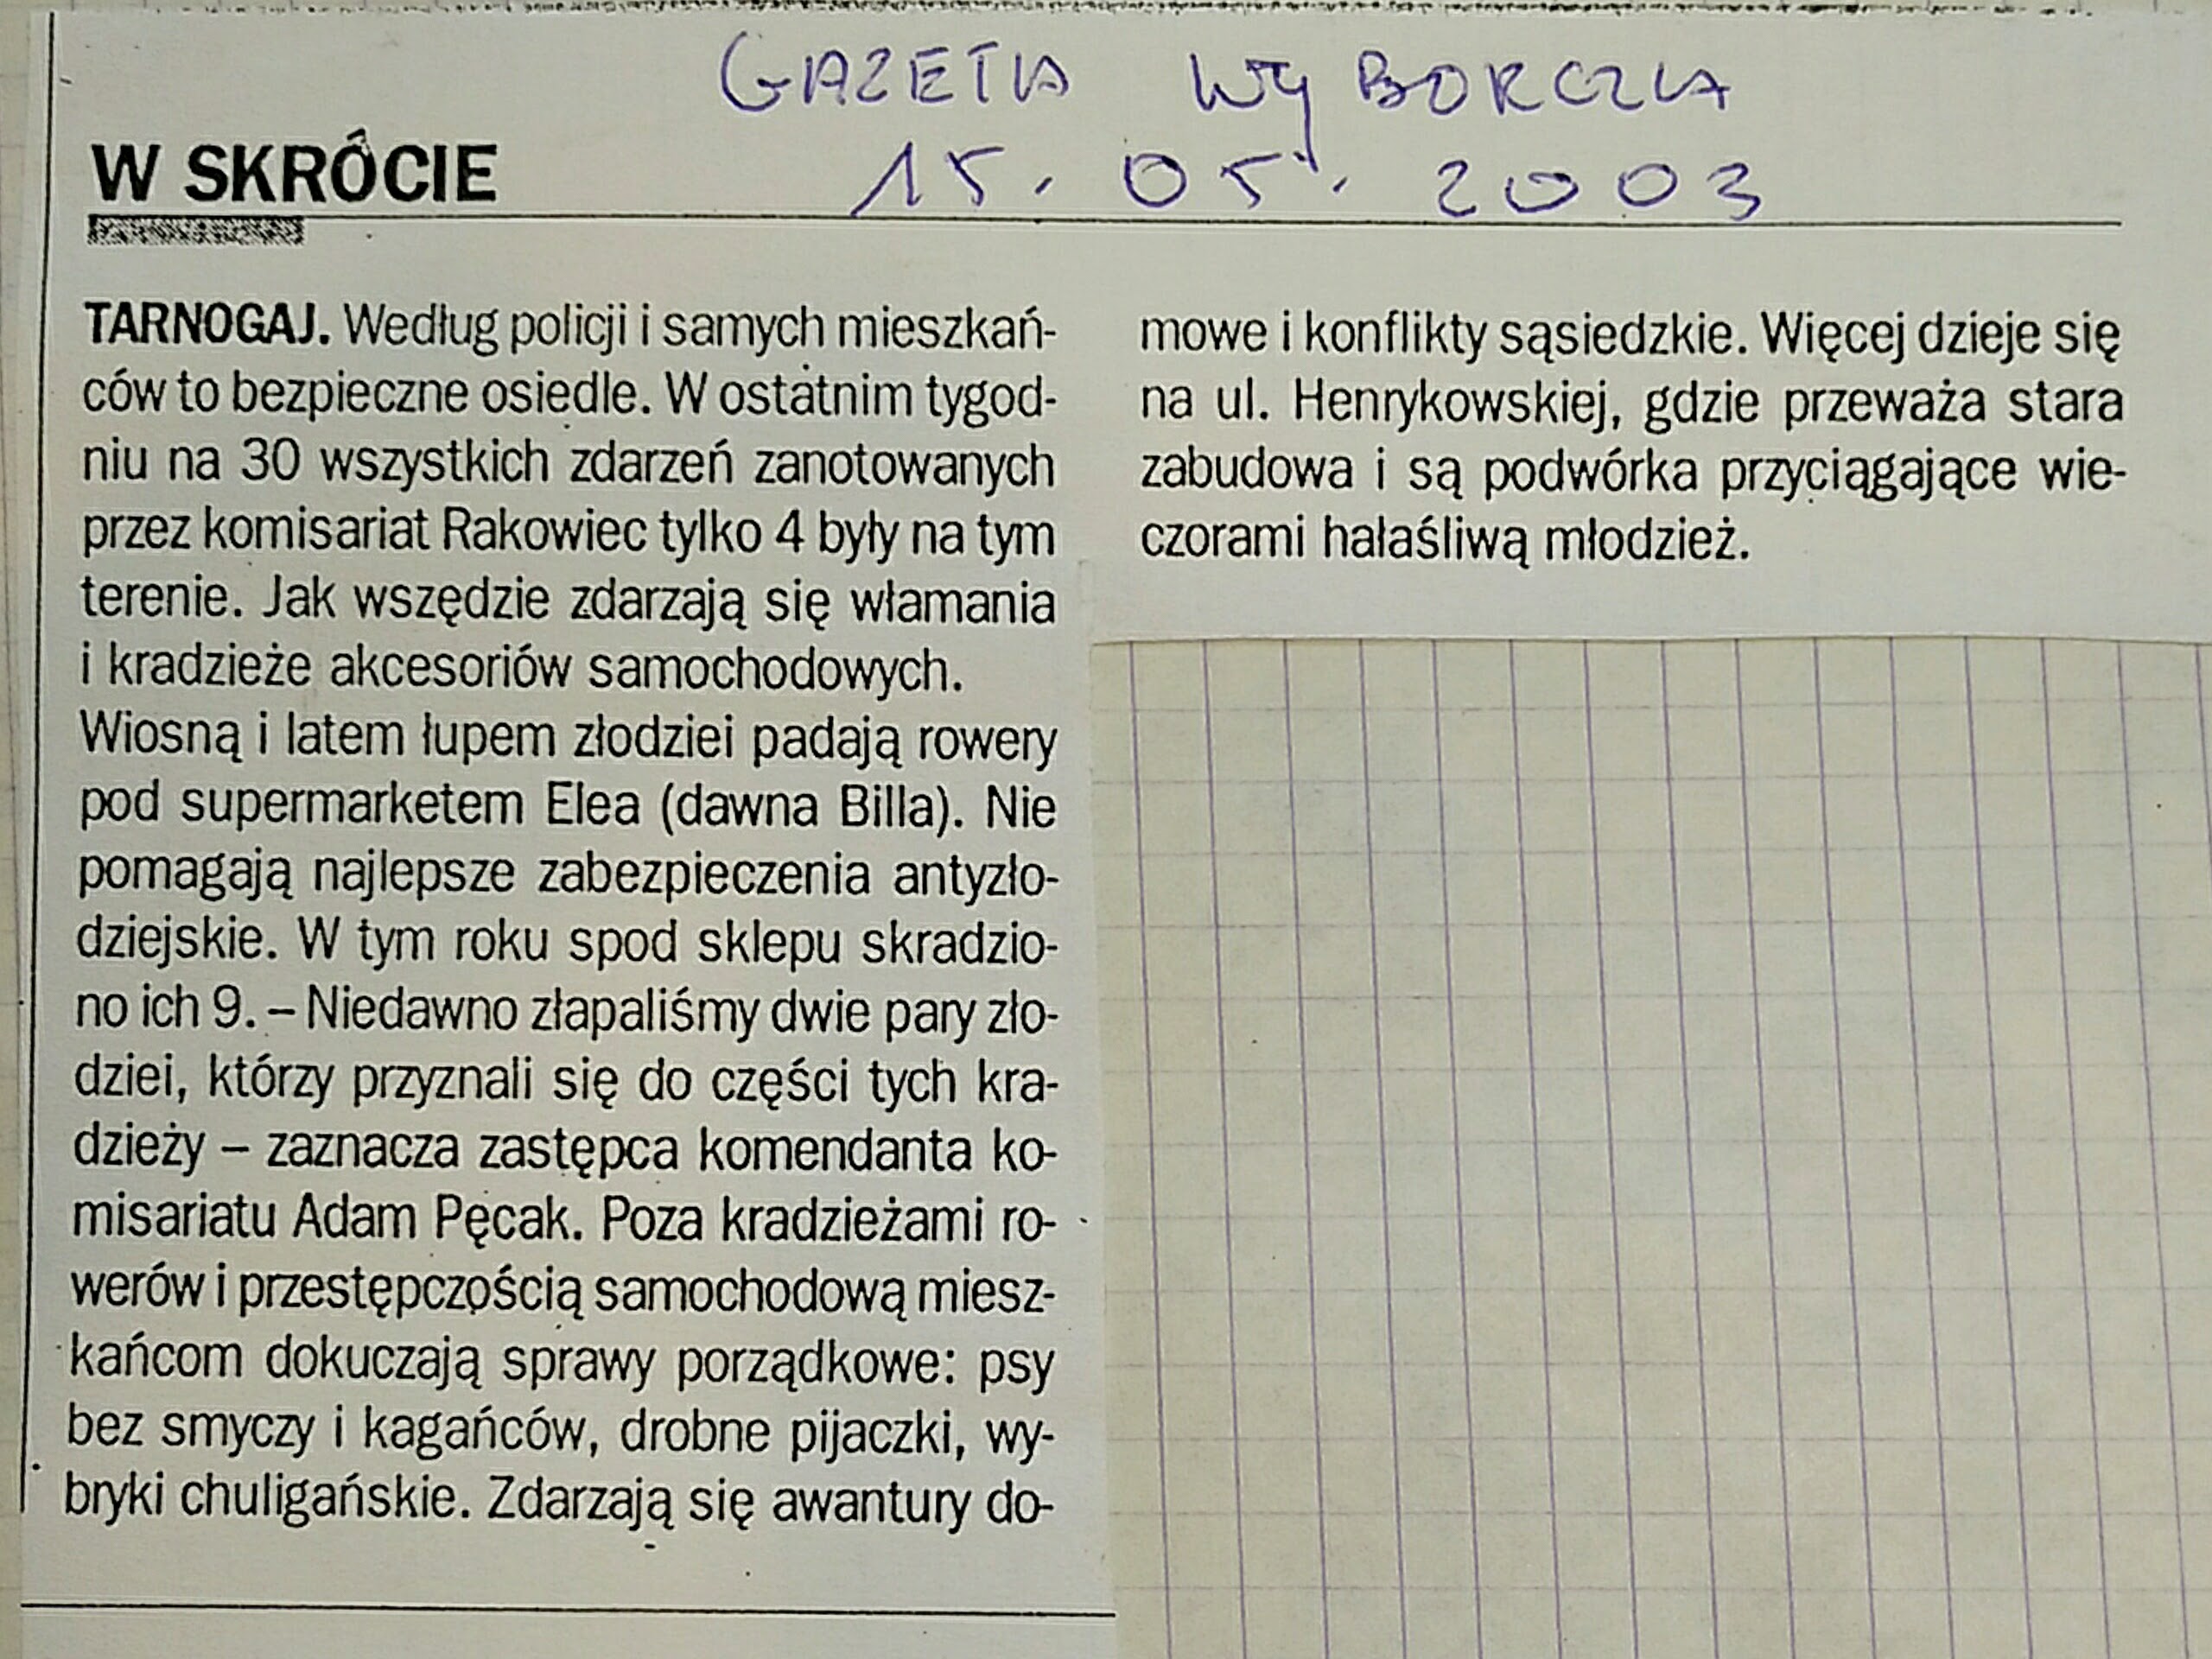 GAZETA WYBORCZA
15.05.2003
W SKRÓCIE
TARNOGAJ. Według policji i samych mieszkań-
ców to bezpieczne osiedle. W ostatnim tygod-
niu na 30 wszystkich zdarzeń zanotowanych
przez komisariat Rakowiec tylko 4 były na tym
terenie. Jak wszędzie zdarzają się włamania
i kradzieże akcesoriów samochodowych.
Wiosną i latem łupem złodziei padają rowery
pod supermarketem Elea (dawna Billa). Nie
pomagają najlepsze zabezpieczenia antyzło-
dziejskie. W tym roku spod sklepu skradzio-
no ich 9. – Niedawno złapaliśmy dwie pary zło-
dziei, którzy przyznali się do części tych kra-
dzieży – zaznacza zastępca komendanta ko-
misariatu Adam Pęcak. Poza kradzieżami ro-
werów i przestępczością samochodową miesz-
kańcom dokuczają sprawy porządkowe: psy
bez smyczy i kagańców, drobne pijaczki, wy-
bryki chuligańskie. Zdarzają się awantury do-
mowe i konflikty sąsiedzkie. Więcej dzieje się
na ul. Henrykowskiej, gdzie przeważa stara
zabudowa i są podwórka przyciągające wie-
czorami hałaśliwą młodzież.